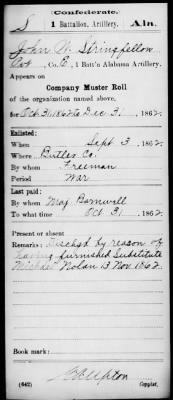 Confederate.
S 1 Battalion, Artillery. Ala.
John W. Stringfellow
Pvt, Co. E, 1 Batt'n Alabama Artillery.
Appears on
Company Muster Roll
of the organization named above,
for Oct 31, 1862 to Dec 31, 1862.
Enlisted:
When Sept 3, 1862.
Where Butler Co.
By whom Freeman
Period War
Last paid:
By whom Maj Barnwell
To what time Oct 31, 1862.
Present or absent
Remarks: Dischgd by reason of
having furnished Substitute
Michael Nolan 13 Nov 1862.
Book mark:
(642) Copyist.